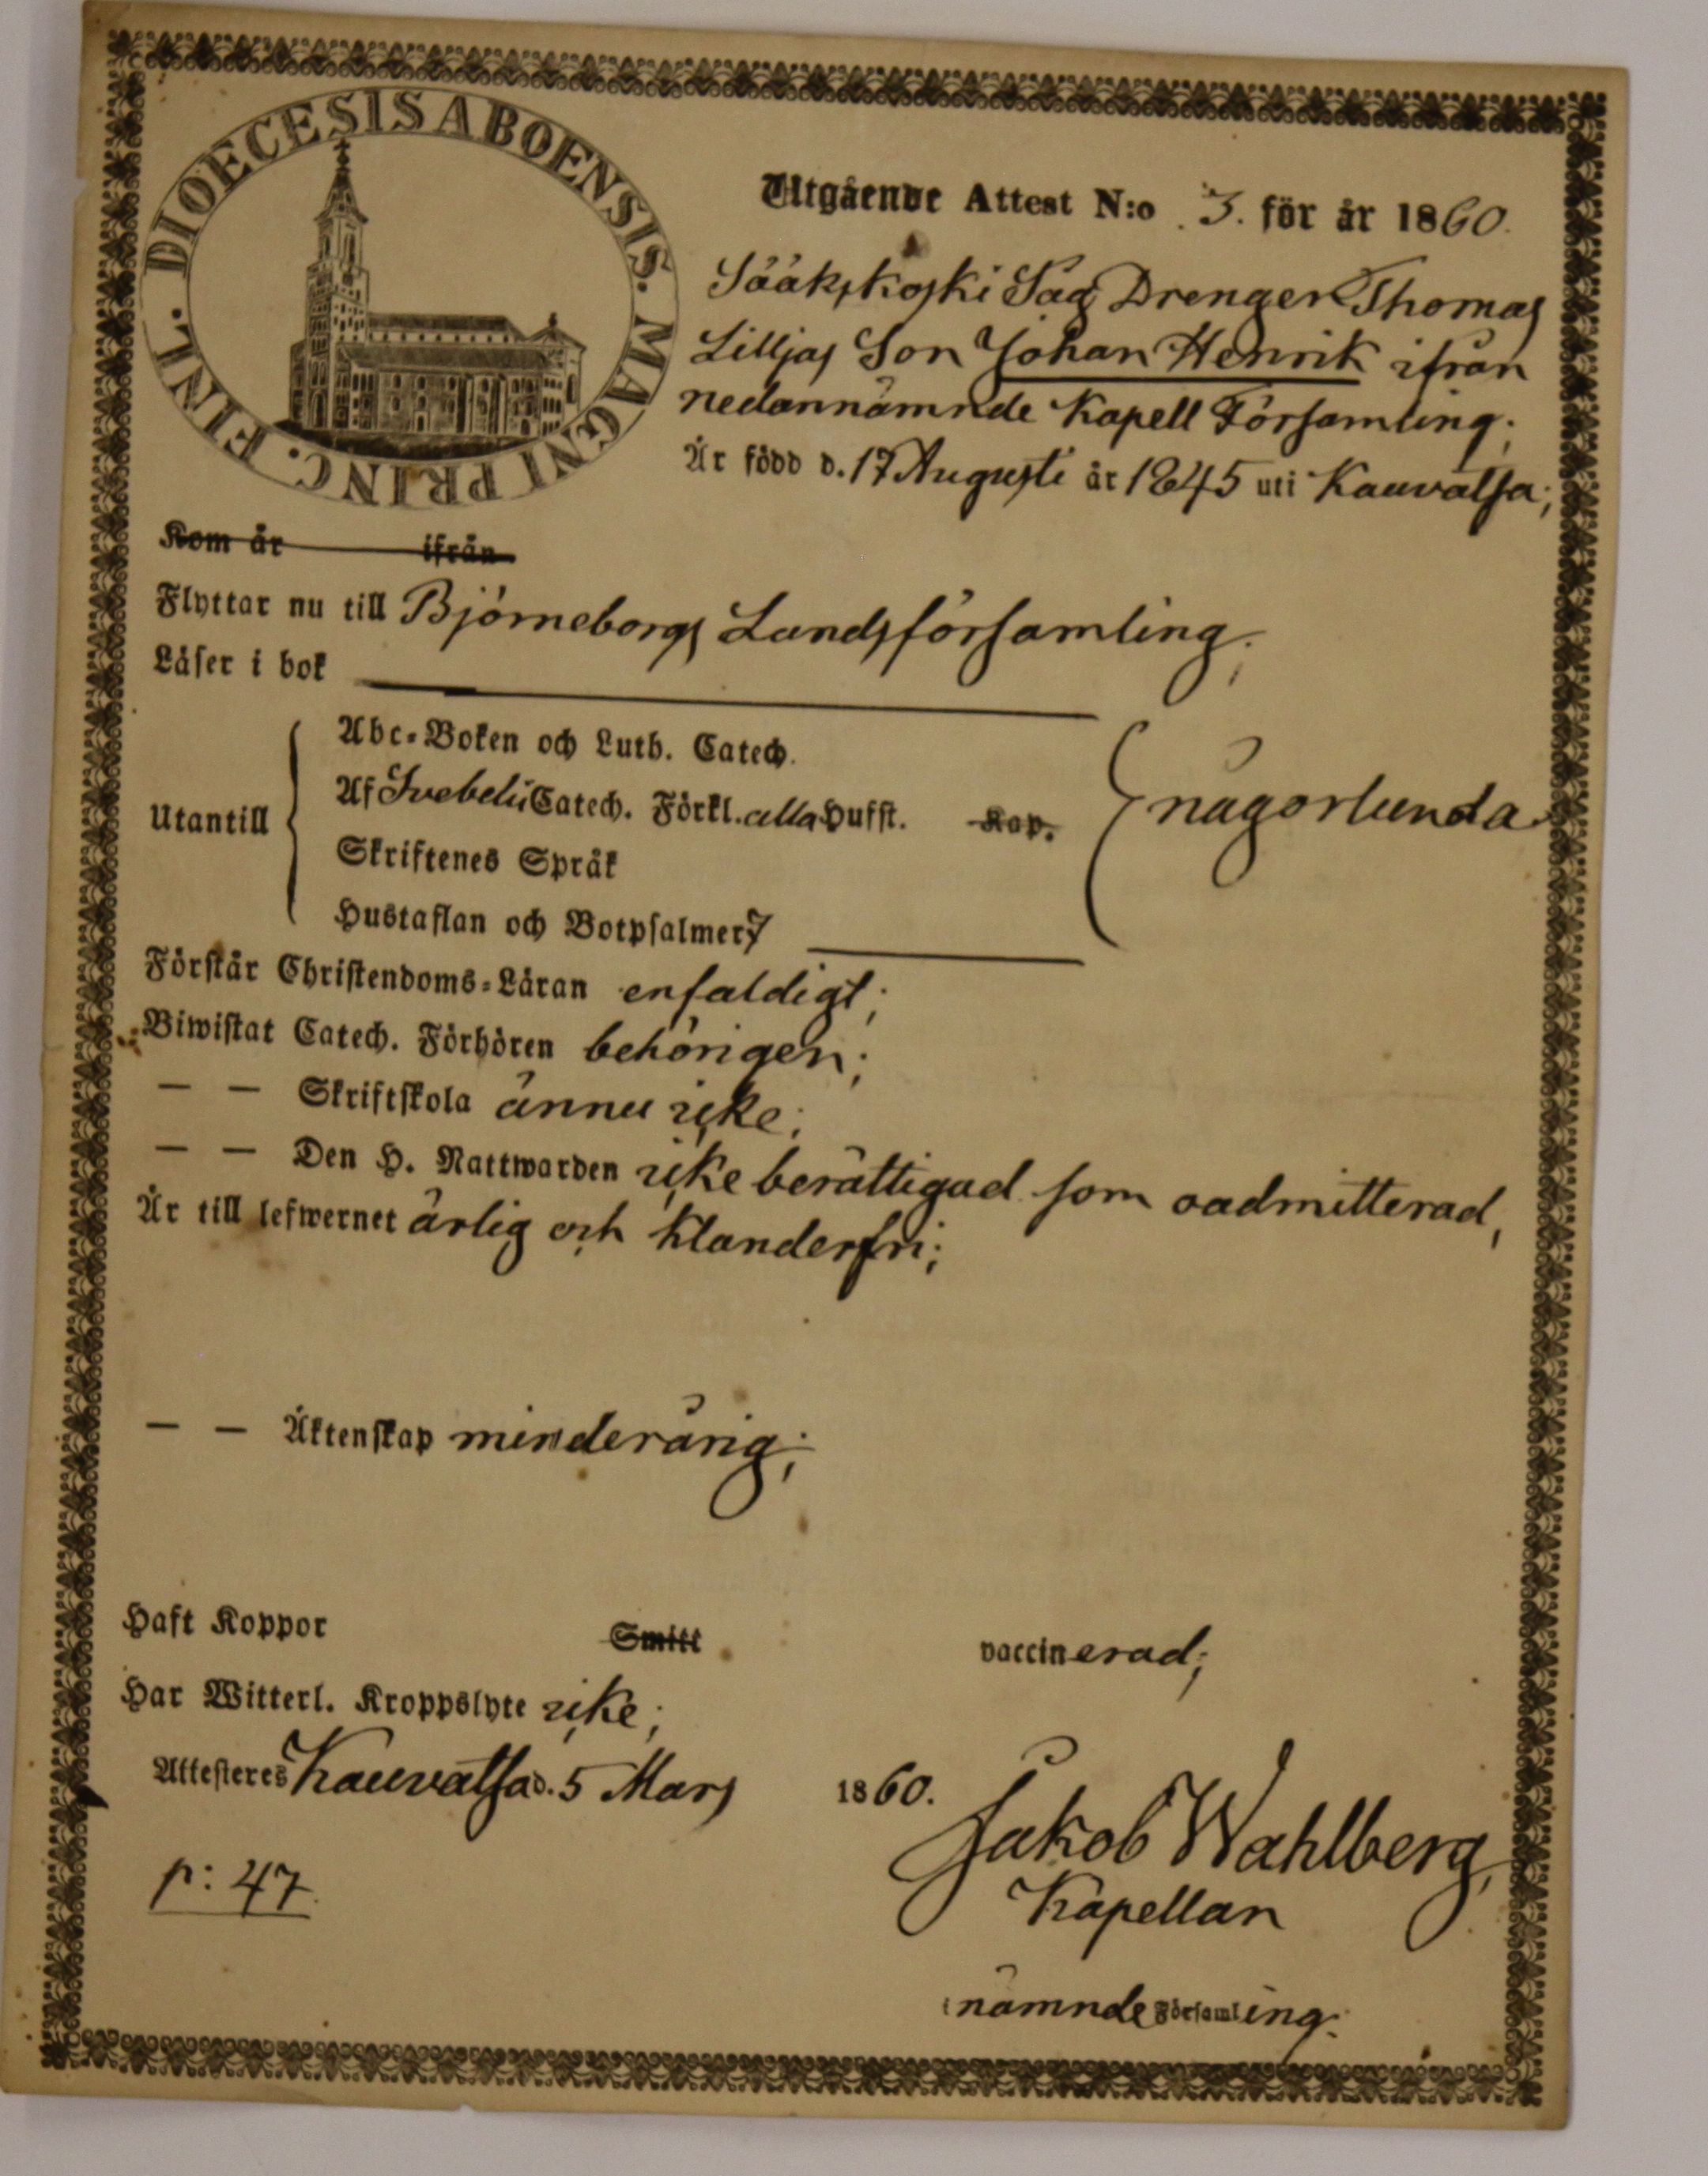 DIOECESIS ABOENSIS. MAGNI PRINC. FINL.
Utgående Attest N:o 3. för år 1860.
Sääkskoski Såg Drengen Thomas
Liljas Son Johan Henrik ifrån
nedannämnde Kapell Församling;
Är född d. 17 Augusti år 1845 uti Kauvatsa;
Kom år ifrån
Flyttar nu till Björneborgs Landsförsamling;
Läser i bok
Abc-Boken och Luth. Catech.
Utantill Af Svebelii Catech. Förkl. alla Hufst. Kap. någorlunda
Skriftenes Språk
Hustaflan och Botpsalmer 7
Förstår Christendoms-Läran enfaldigt;
Biwistat Catech. Förhören behörigen;
— — Skriftskola ännu icke;
— — Den H. Nattwarden icke berättigad som oadmitterad,
Är till lefwernet ärlig och klanderfri;
— — Äktenskap minderårig;
Haft Koppor Smitt vaccinerad;
Har Witterl. Kroppslyte icke;
Attesteres Kauvatsa d. 5 Mars 1860.
Jakob Wahlberg,
p: 47.
Kapellan
i nämnde Församling.